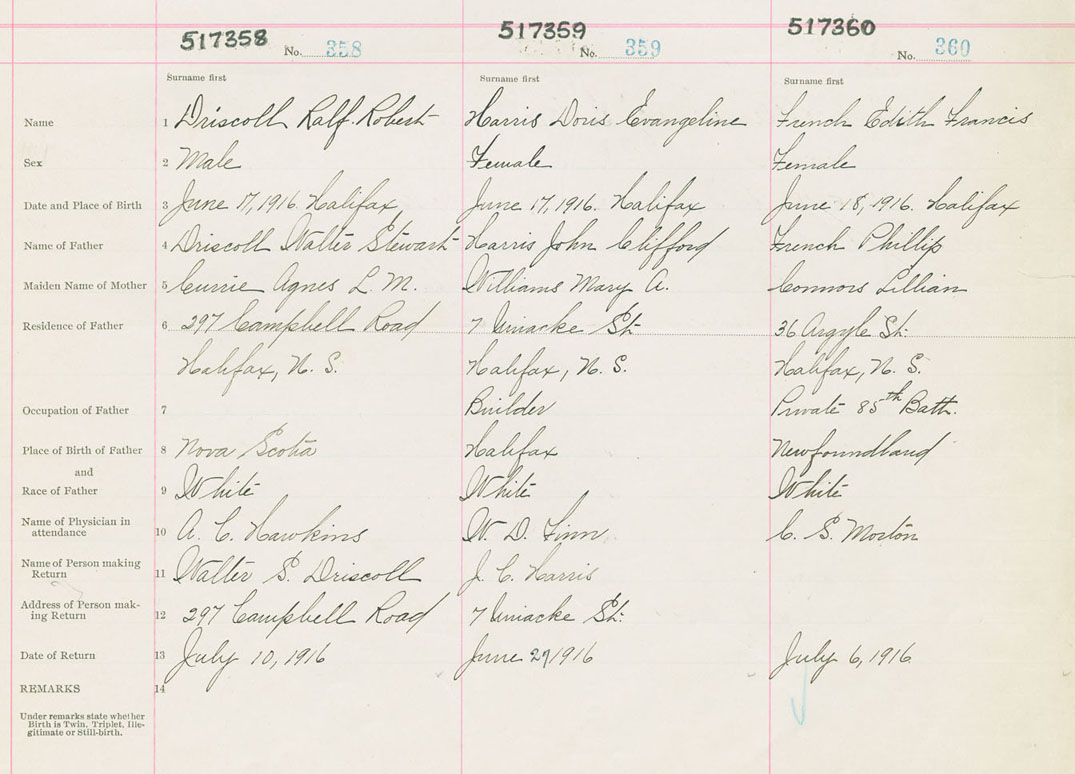 517358 No. 358 517359 No. 359 517360 No. 360
Surname first Surname first Surname first
Name 1 Driscoll Ralf. Robert Harris Doris Evangeline French Edith Francis
Sex 2 Male Female Female
Date and Place of Birth 3 June 17, 1916. Halifax June 17, 1916. Halifax June 18, 1916. Halifax
Name of Father 4 Driscoll Walter Stewart Harris John Clifford French Phillip
Maiden Name of Mother 5 Currie Agnes L. M. Williams Mary A. Connors Lillian
Residence of Father 6 297 Campbell Road 7 Uniacke St. 36 Argyle St.
Halifax, N. S. Halifax, N. S. Halifax, N. S.
Occupation of Father 7 Builder Private 85th Batt.
Place of Birth of Father 8 Nova Scotia Halifax Newfoundland
and
Race of Father 9 White White White
Name of Physician in
attendance 10 A. C. Hawkins W. D. Finn C. S. Morton
Name of Person making
Return 11 Walter S. Driscoll J. C. Harris
Address of Person mak-
ing Return 12 297 Campbell Road 7 Uniacke St.
Date of Return 13 July 10, 1916 June 27 1916 July 6, 1916
REMARKS 14
Under remarks state whether
Birth is Twin, Triplet, Ille-
gitimate or Still-birth.